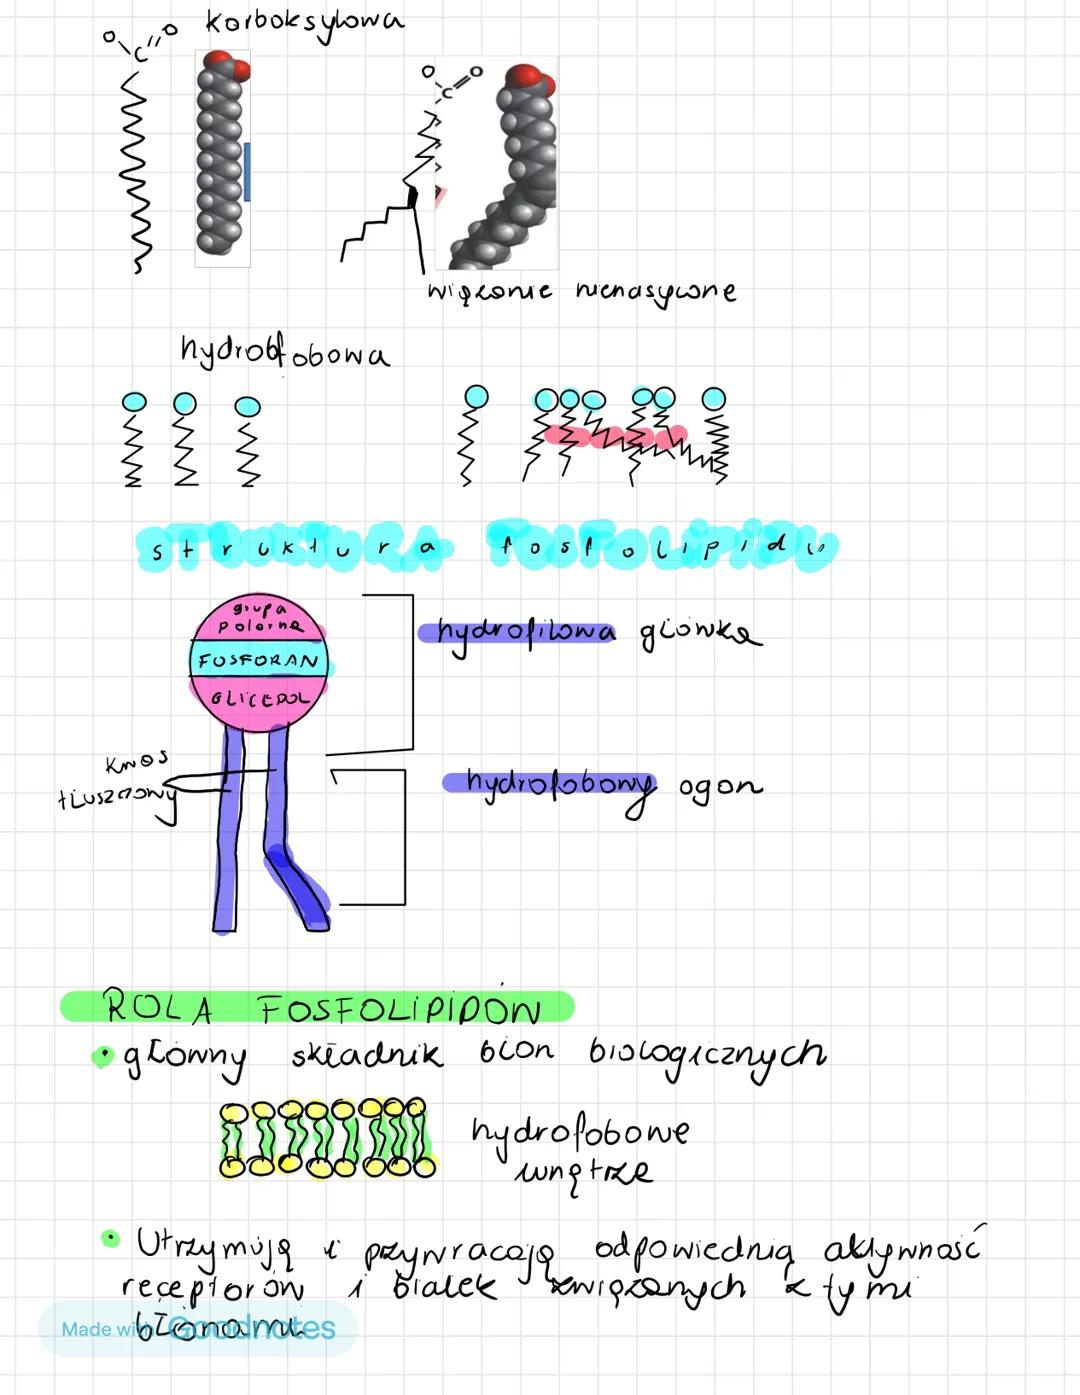 korboksylowa
O O
C
O O
C
wiązanie nienasycone
hydrofobowa
struktura fosfolipidu
grupa
polarna
FOSFORAN
GLICEROL
hydrofilowa główka
kwas
tłuszczowy
hydrofobowy ogon
ROLA FOSFOLIPIDÓW
• główny składnik błon biologicznych
hydrofobowe
wnętrze
• Utrzymują i przywracają odpowiednią aktywność
receptorów i białek związanych z tymi
błonami
Made with Goodnotes